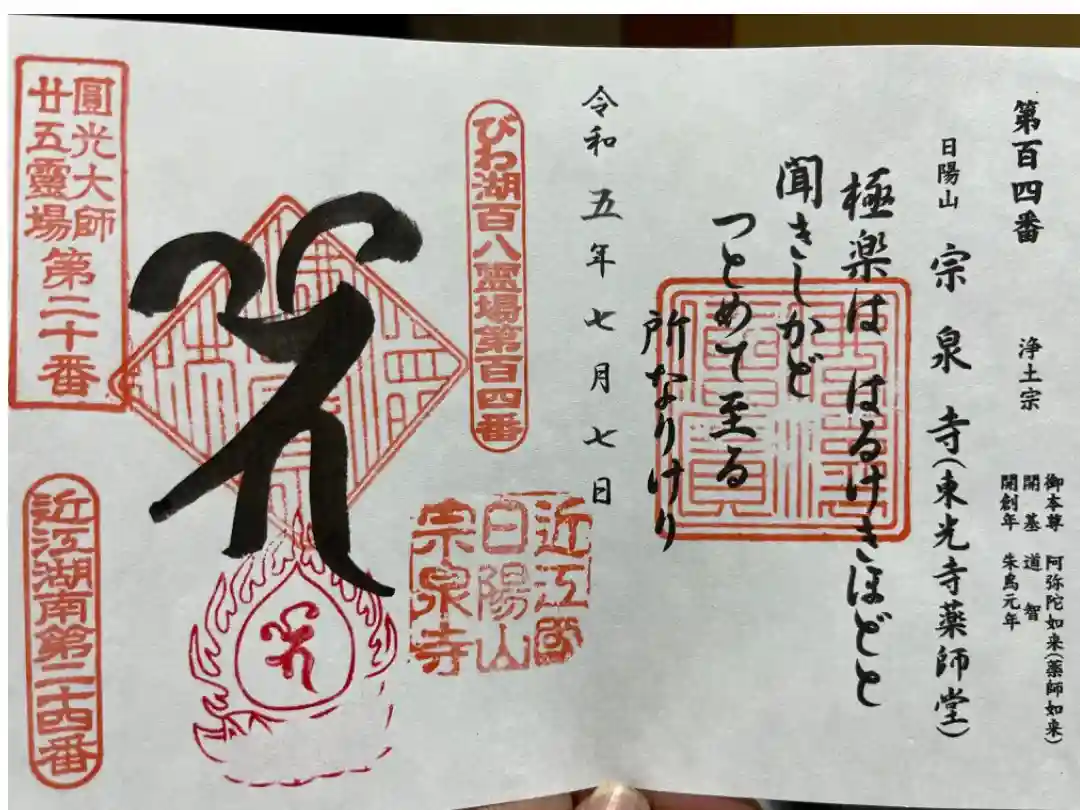 第百四番
日陽山 宗泉寺(東光寺薬師堂)
浄土宗
御本尊 阿弥陀如来(薬師如来)
開基 道智
開創年 朱鳥元年
極楽は はるけきほどと
聞きしかど
つとめて至る
所なりけり
令和五年七月七日
びわ湖百八霊場第百四番
近江國
日陽山
宗泉寺
圓光大師
廿五靈場
第二十番
近江湖南第二十四番